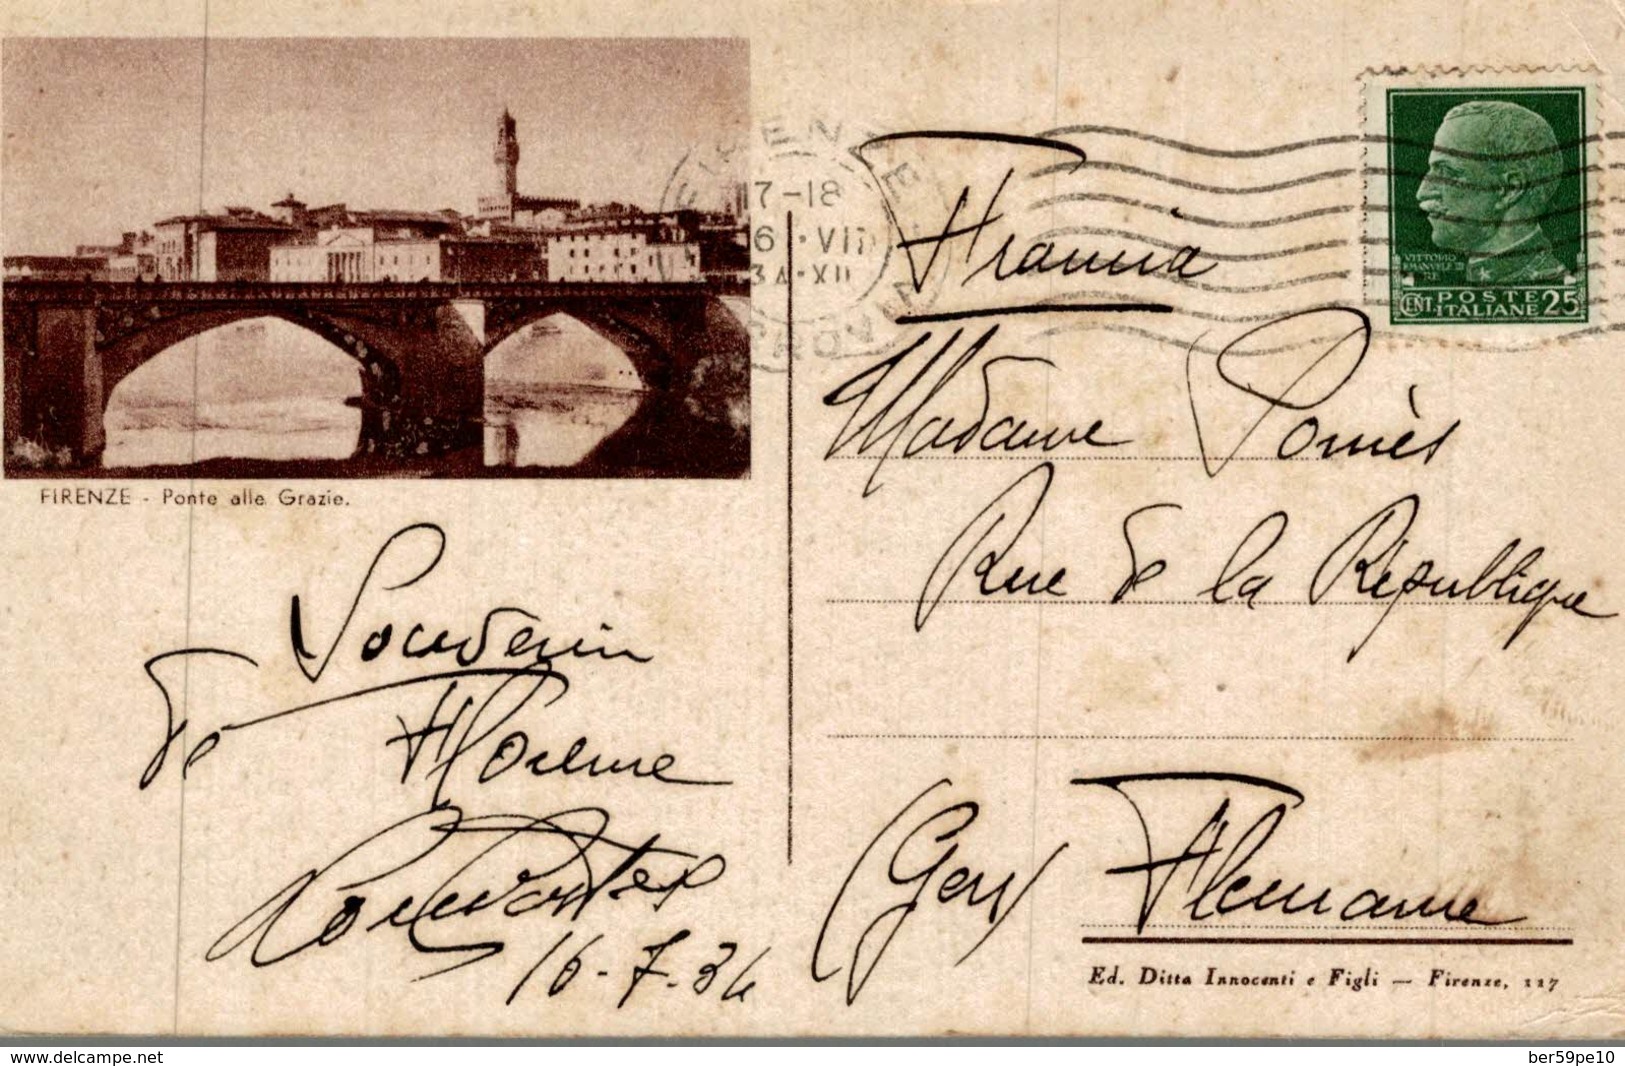 FIRENZE - Ponte alle Grazie.
Souvenir
de Florence
16-7-34
FIRENZE FERROVIA
17-18
16 · VII
34 · XII
VITTORIO
EMANUELE III
RE
CENT. POSTE ITALIANE 25
Francia
Madame Pomiès
Rue de la République
(Gers) Flemarme
Ed. Ditta Innocenti e Figli — Firenze, 117
delcampe.net
ber59pe10